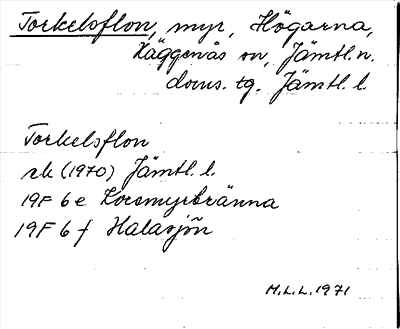 Torkelsflon, myr, Högarna,
Häggenås sn, Jämtl. n.
doms. tg. Jämtl. l.
Torkelsflon
rk (1970) Jämtl. l.
19F 6 e Locsmyrbränna
19F 6 f Halasjön
M.L.L. 1971